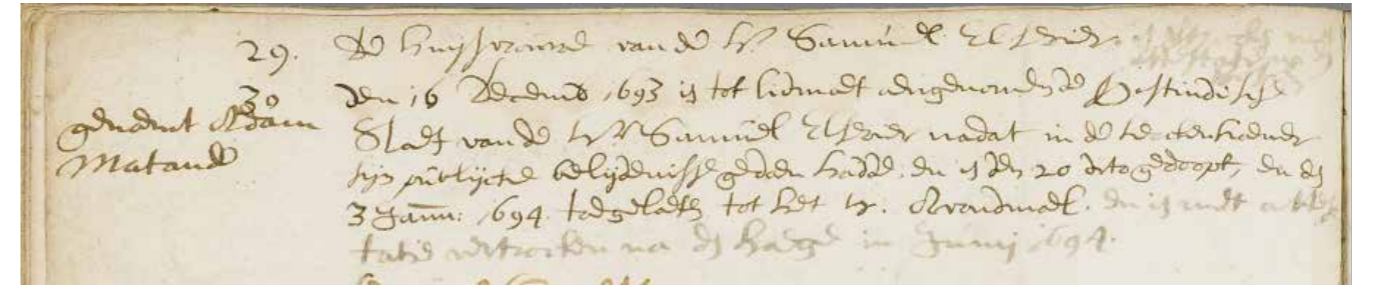 29. De huijsvrouwe van de Hr. Samuel Elsevier.
30 den 16 Decemb 1693 is tot lidmaet aengenomen de Oostindische
genaemt Adam Slaef van de Hr. Samuel Elsevier nadat in de
Matande sijn publijcke belijdenisse gedaen hadde, en is den 20 dito gedoopt, en de
3 Janu: 1694. toegelaten tot het H. Avondmael. en is mett attes
tatie vertrocken na de Haege in Junij 1694.